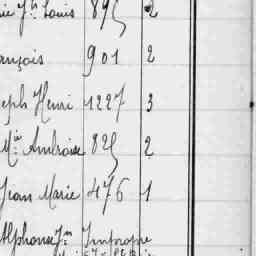 Jh Louis 895 2
ançois 901 2
eph Henri 1227 3
Mie Ambroise 825 2
Jean Marie 476 1
Alphonse Jn Impropre